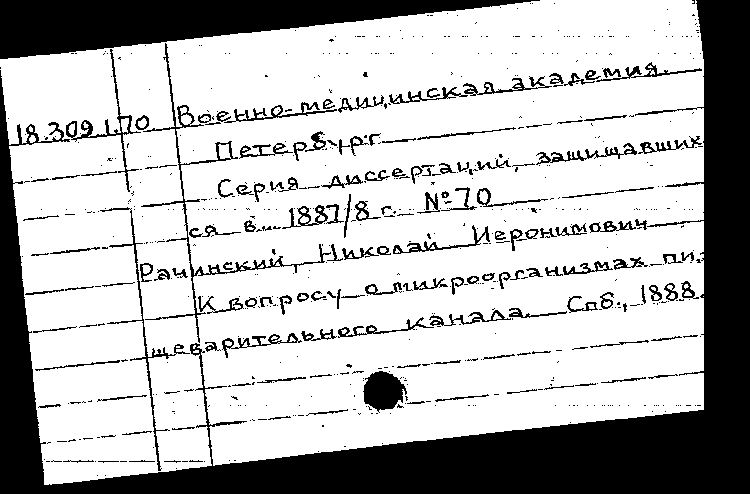 18.309 1.70 Военно-медицинская академия.
Петербург
Серия диссертаций, защищавших
ся в 1887/8 г. № 70
Рачинский, Николай Иеронимович
К вопросу о микроорганизмах пи-
щеварительного канала. Спб., 1888.